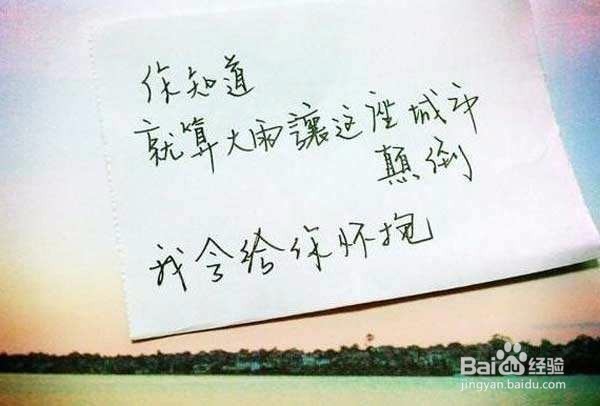 你知道
就算大雨讓这座城市
顛倒
我会给你怀抱
Baidu 经验
jingyan.baidu.com